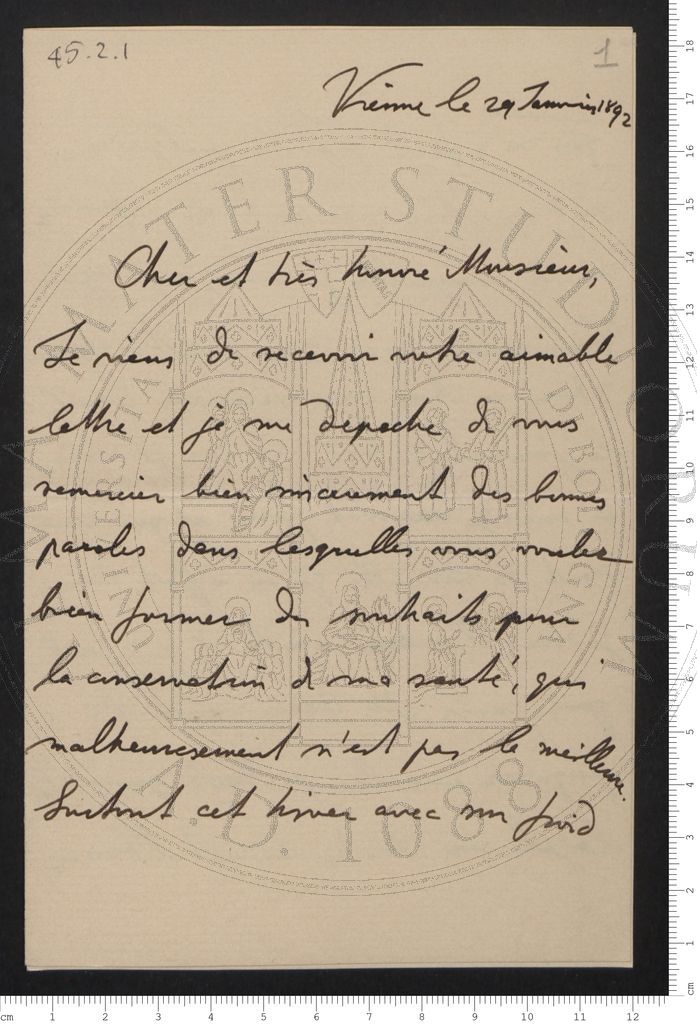 45.2.1
1
Vienne le 29 Janvier 1892
Cher et très honoré Monsieur,
Je viens de recevoir votre aimable
lettre et je me depeche de vous
remercier bien sincerement des bonnes
paroles dans lesquelles vous voulez
bien former des souhaits pour
la conservation de ma santé, qui
malheureusement n'est pas la meilleure.
Surtout cet hiver avec son froid
ALMA MATER STUDIORUM
UNIVERSITA DI BOLOGNA
A.D. 1088